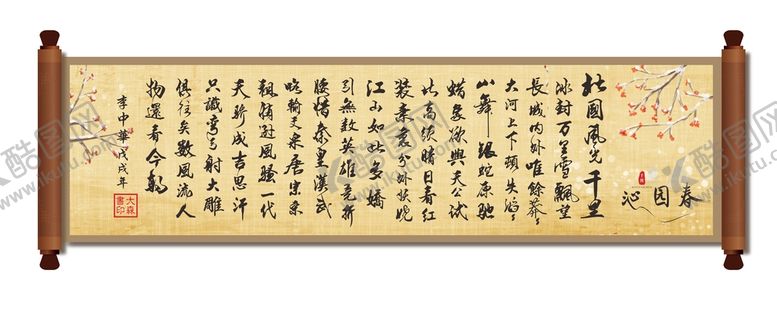 沁园春
北國風光千里
冰封万里雪飄望
長城内外唯餘莽〻
大河上下頓失滔〻
山舞銀蛇原馳
蜡象欲與天公試
比高須晴日看紅
裝素裹分外妖嬈
江山如此多嬌
引無數英雄竞折
腰惜秦皇漢武
略輸文采唐宗宋
祖稍逊風騷一代
天驕成吉思汗
只識彎弓射大雕
俱往矣數風流人
物還看今朝
李中華戊戌年
大森
書印